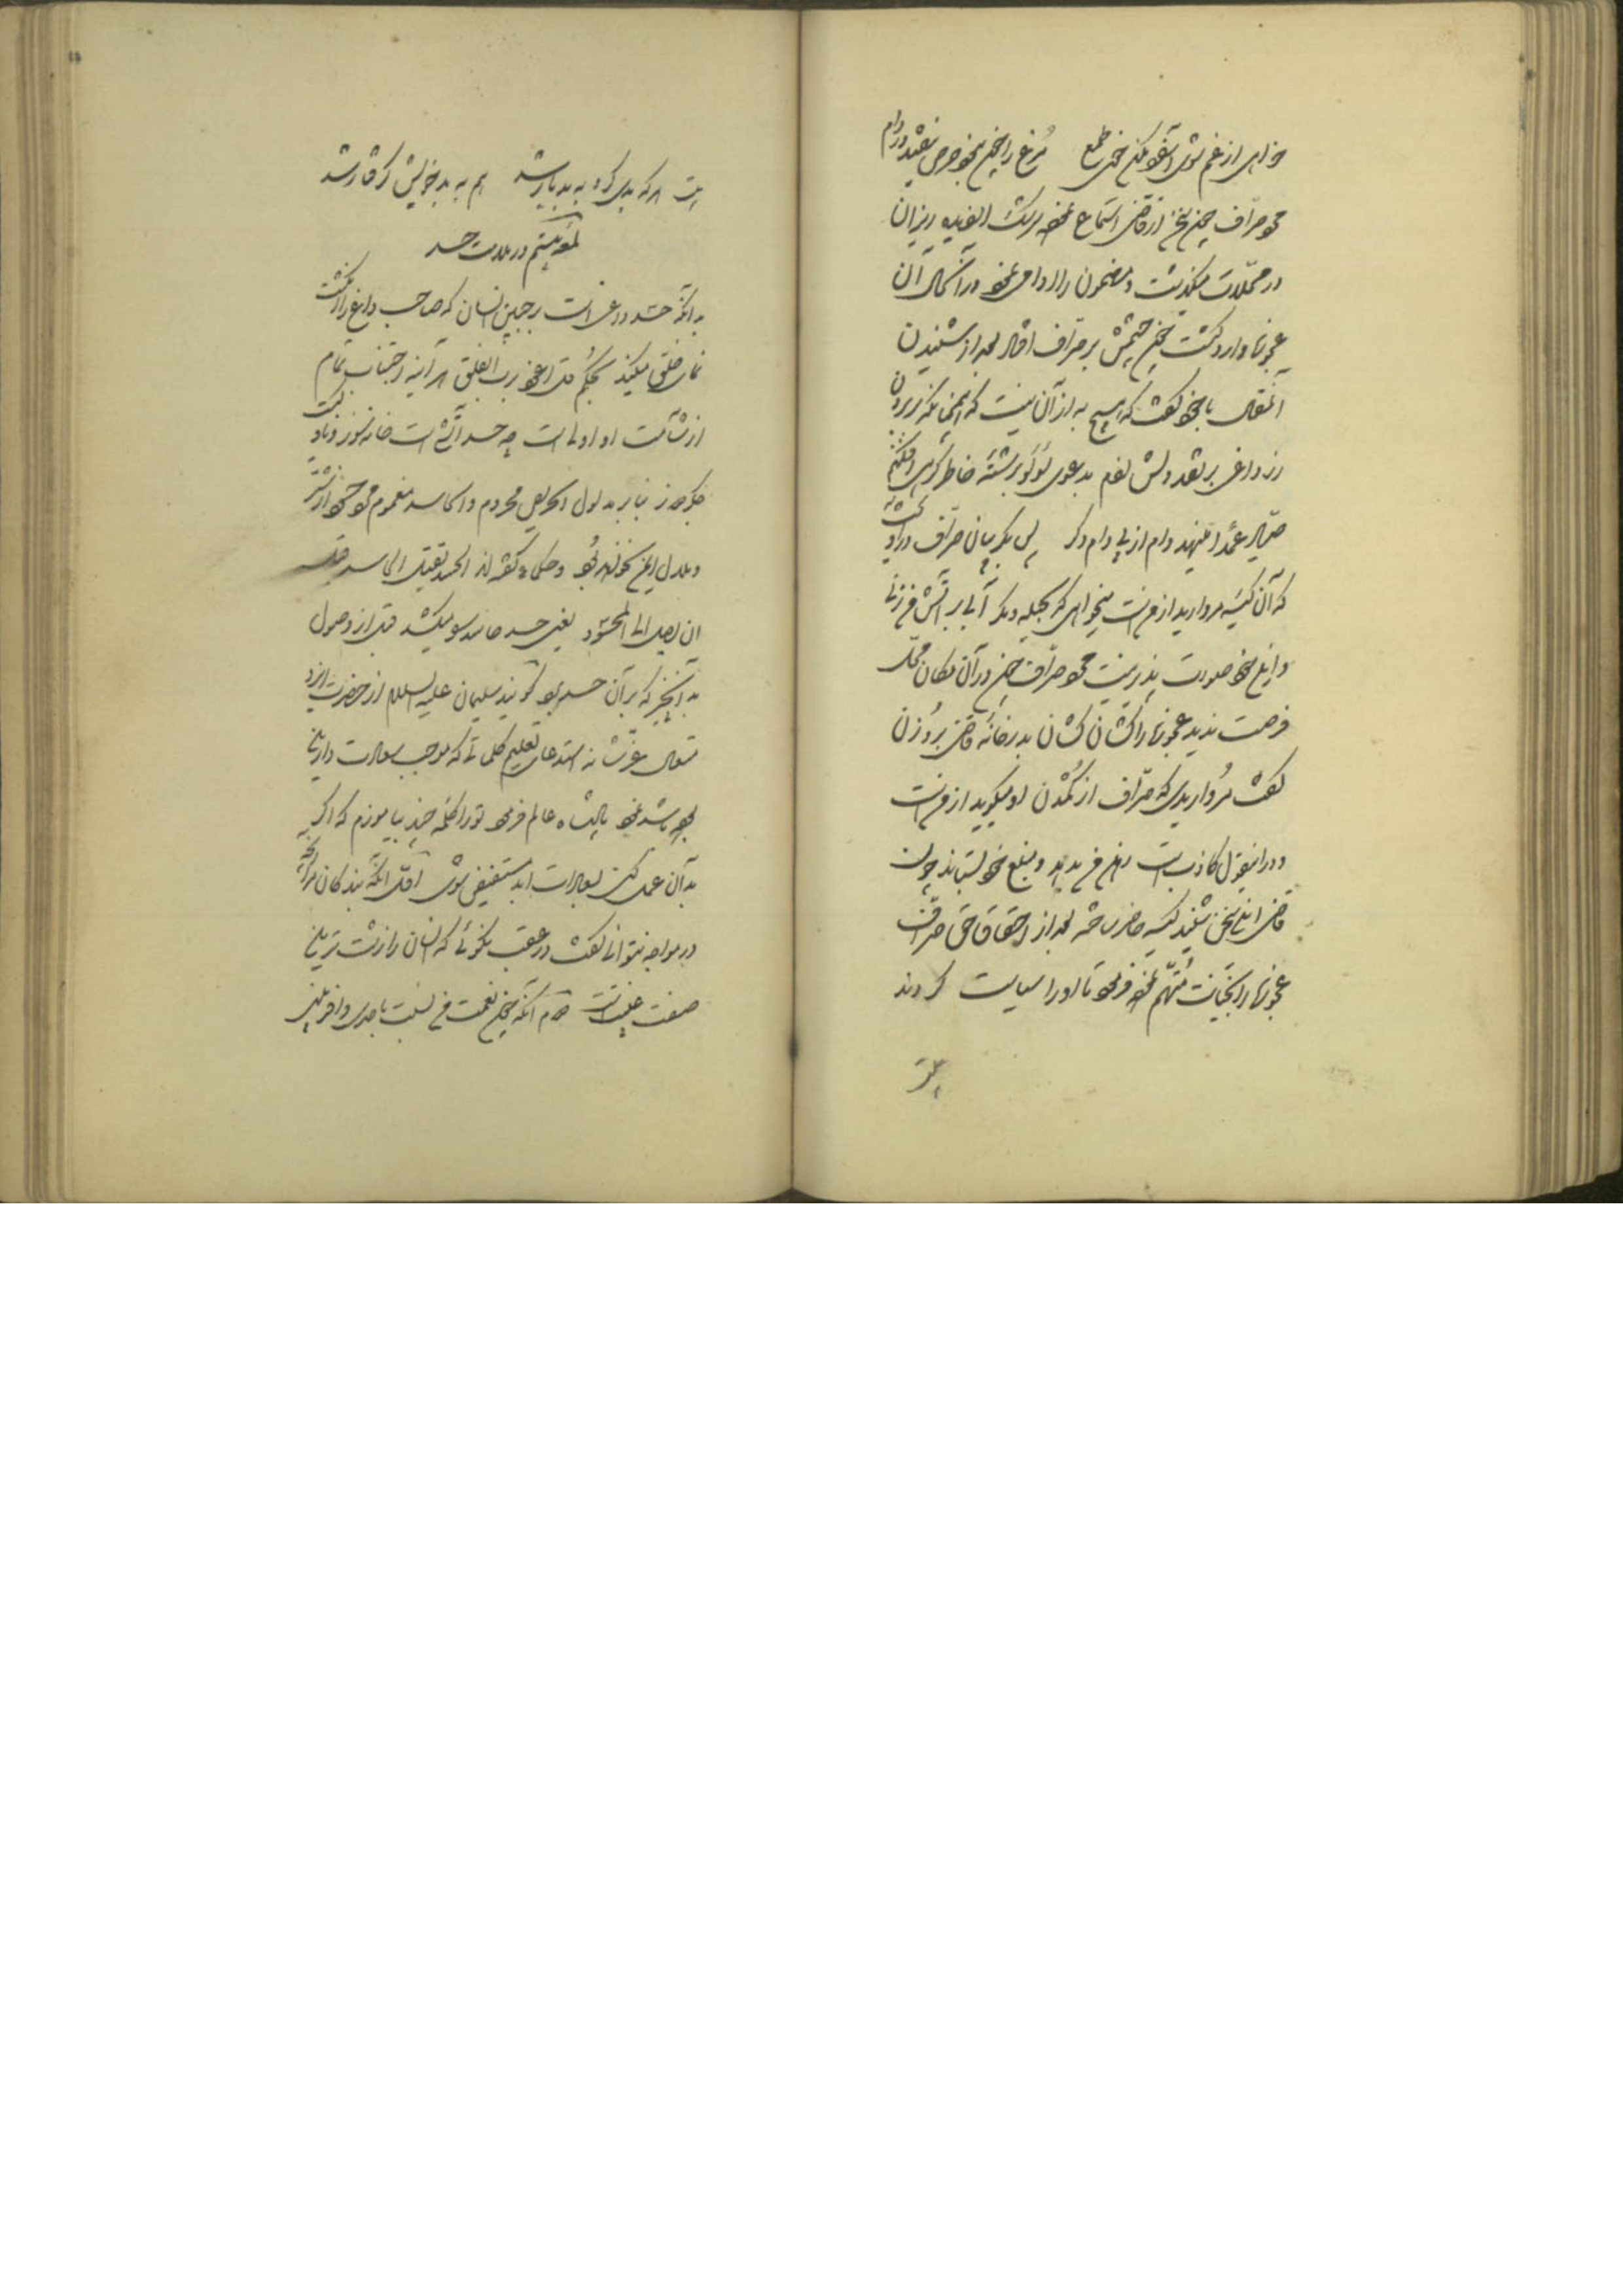 خواهی از غم شوی آسوده مکن خوی طمع مرغ را چون نبود حرص نیفتد در دام
محمود صراف چون سخن از قاضی استماع نمود برکشت الغیبه ریزان
در محلات میگذشت و مضمون را ادا می نمود در آنحال آن
عجوزه وارد گشت چون چشمش بر صراف افتاد بعد از شنیدن
آنمقال با خود گفت که هیچ به از آن نیست که
داغی بر نقد دلش نهم بدعوی لؤلؤ برشته خاطر
صیاد عمدا منهد دام از پی دام دگر پس گریبان صراف در آویخت
که آن کیسه مروارید از من است میخواهی که بحیله دیگر آبی بر آتش من زنی
و این خود صورت پذیر نیست محمود صراف چون در آن مکان محل
فرصت ندید عجوزه را کشان کشان بدرخانه قاضی برد زن
گفت مرواریدی که صراف از گمشدن او میگوید از من است
و در اینقول کاذب است رهن من بدهد و مبلغ خود بستاند چون
قاضی این سخن شنید کیسه حاضر ساخته بعد از احقاق حق صراف
عجوزه را بخیانت متهم نمود فرمود تا او را سیاست کردند
بیت
بیت هر که بدی کرد به بد یار شد هم به بد خویش گرفتار شد
لمعه بیستم در ملامت حسد
بدانکه حسد داغی است بر جبین انسان که صاحب داغ را انگشت
نمای خلق میکند بحکم قل اعوذ برب الفلق هر آینه اجتناب تمام
از شآمت او اولی است چه حسد آتشی است خانه سوز و بادی
جگر دوز بنابر مدلول الحریص محروم و الحاسد مغموم
و ملال این نخواهد بود و حکما گفته اند الحسد یقتل الحاسد قبل
ان یصل الی المحسود یعنی حسد حاسد را میکشد قبل از وصول
به آنچیز که بر آن حسد برد گویند سلیمان علیه السلام از حضرت ایزد
متعال عزشانه استدعای تعلیم کلماتی که موجب سعادت دارین
بوده باشد نمود پادشاه عالم فرمود تو را کلمه چند بیاموزم که اگر
به آن عمل کنی بسعادت ابد مستفیض شوی اول آنکه بندگان مرا آنچه
در مواجه نتوانی گفت در عقب نگوئی که انسان را زشت ترین
صفت غیبت است دوم آنکه چون نعمت من نسبت باحدی وافر بینی